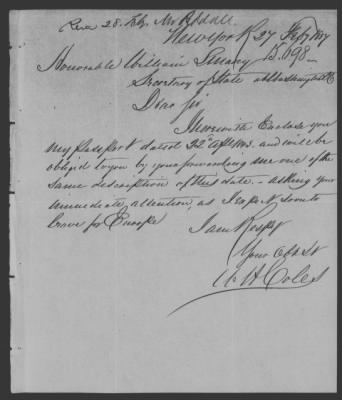 Rec 28. Feby. Mr
New York 27 Feby
B. 698—
Honorable William
Secretary of State at Washington
Dear Sir
I herewith Enclose you
my passport dated 22 Apl and will be
obliged to you by your forwarding me one of the
same description of this date. - asking your
immediate attention, as I expect soon to
leave for Europe
I am Respy
Your Obt St
W H Coles